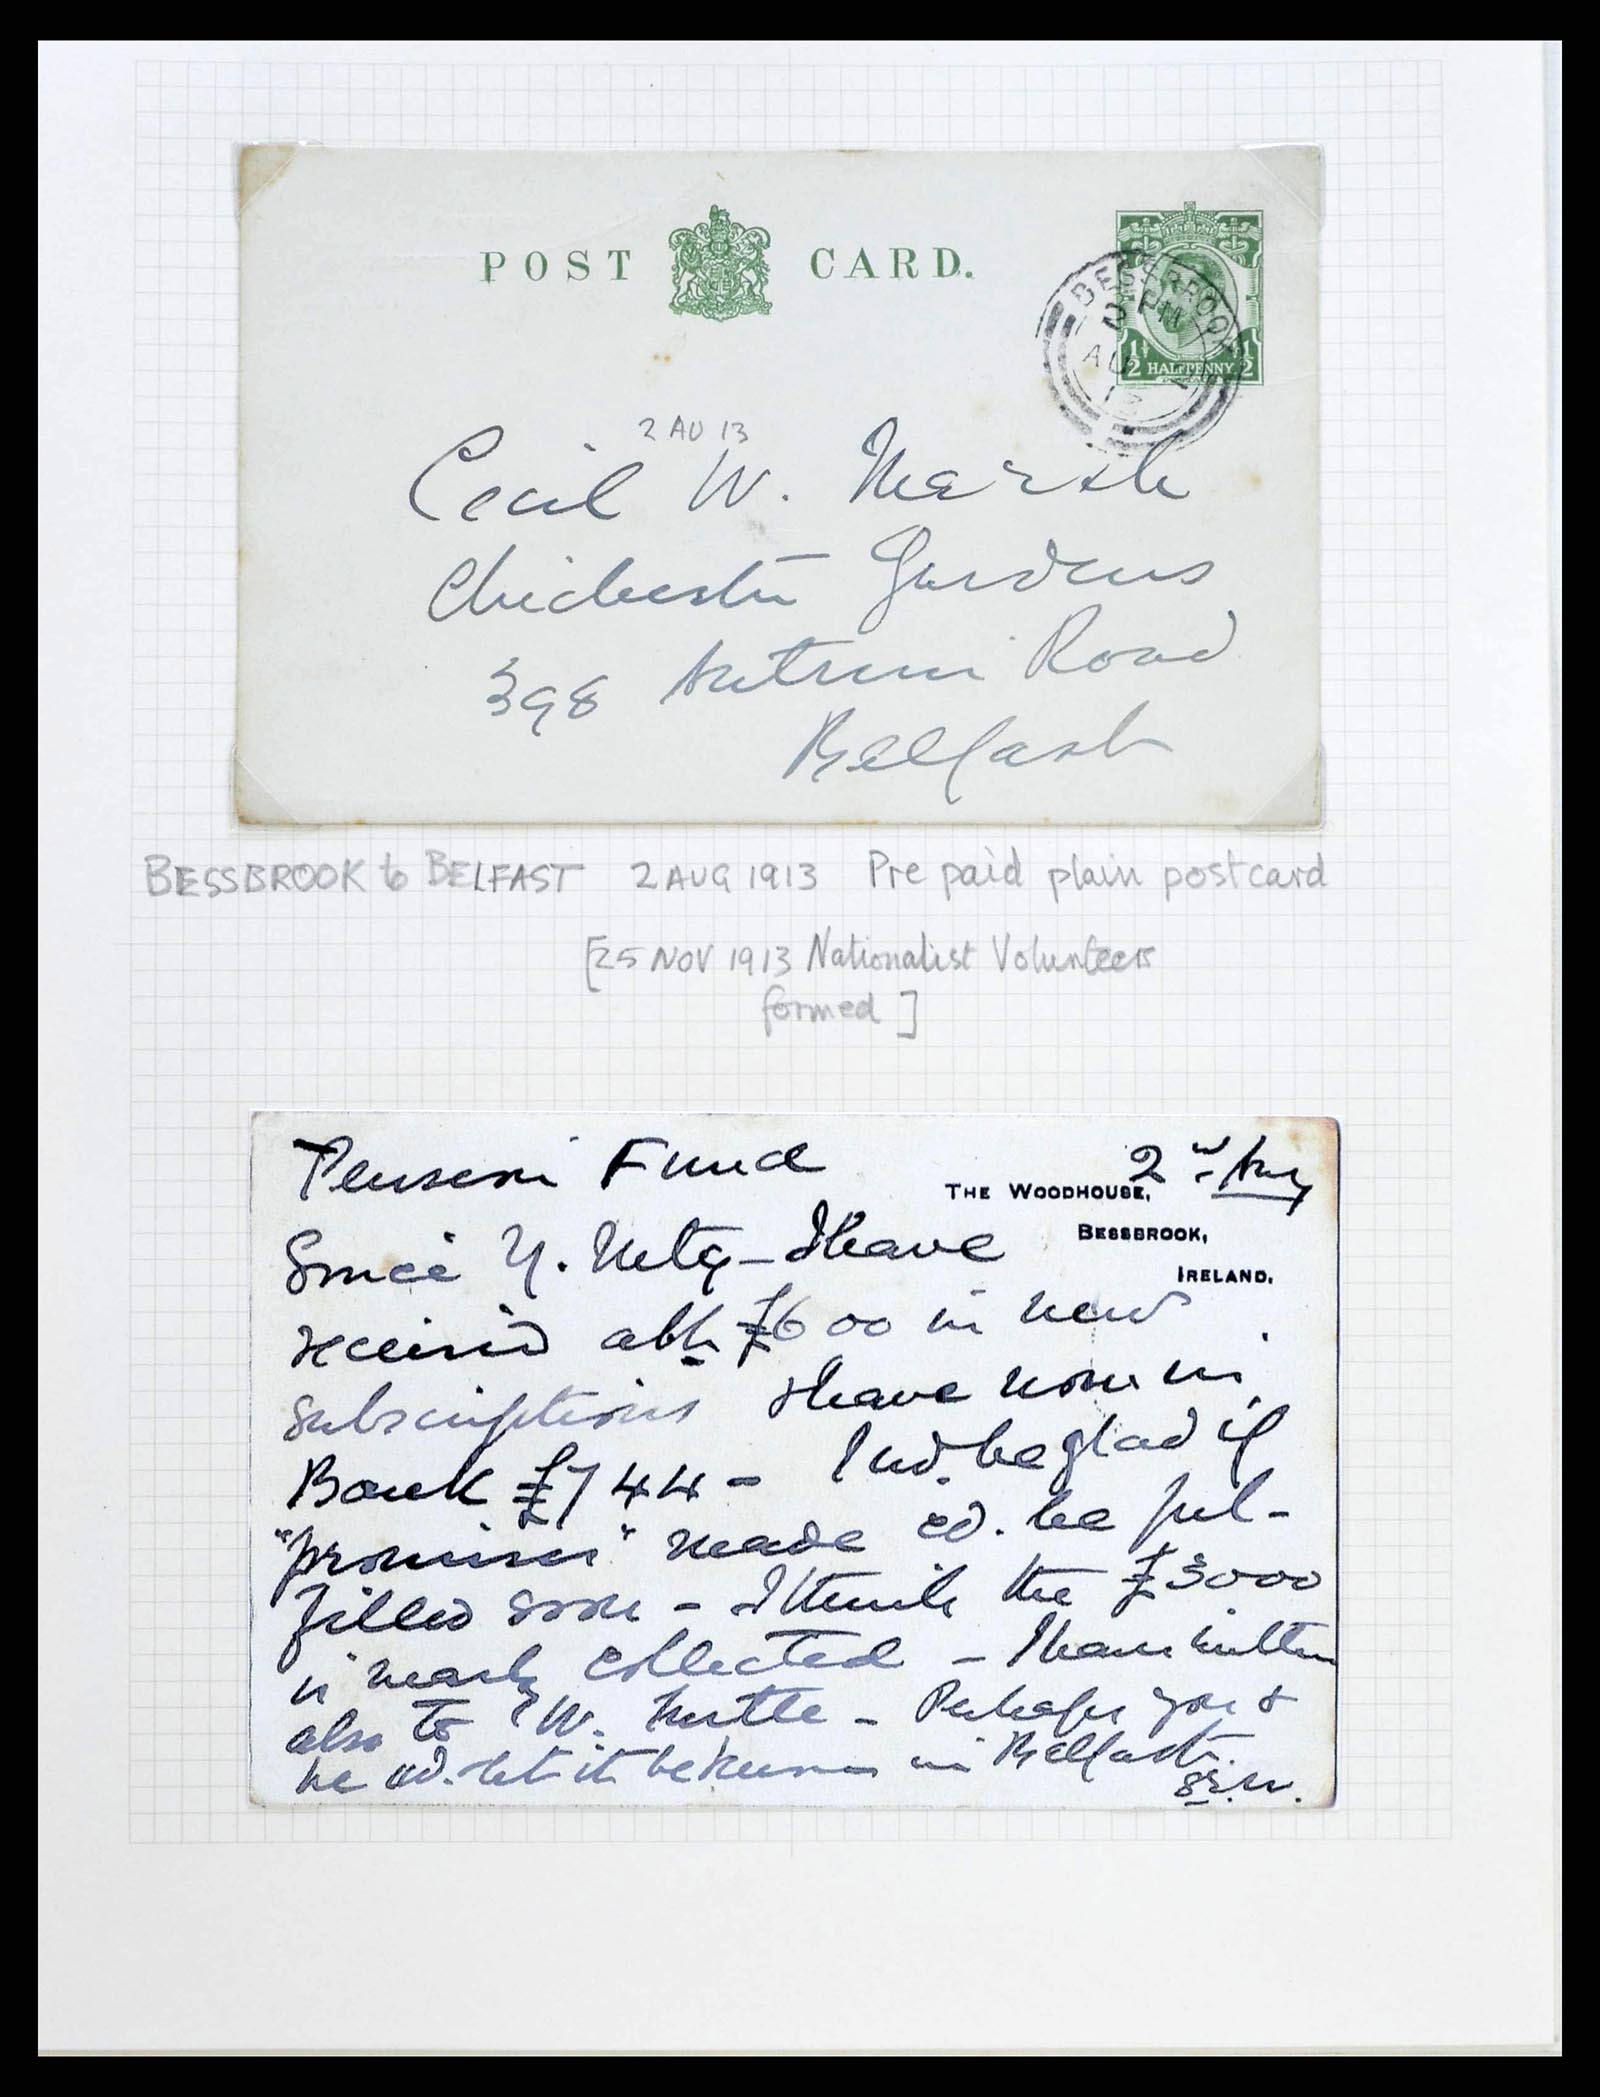 POST CARD.
BESSBROOK
PM
AU 2
13
½ HALFPENNY ½
2 AU 13
Cecil W. Marsh
Chichester Gardens
398 Antrim Road
Belfast
BESSBROOK to BELFAST 2 AUG 1913 Pre paid plain postcard
[25 NOV 1913 Nationalist Volunteers
formed]
Pension Fund 2nd Aug
THE WOODHOUSE,
BESSBROOK,
IRELAND.
Since Y. Metg - I have
received abt £600 in new
subscriptions & have now in
Bank £744 - I wd. be glad if
"promises" made cd. be ful-
filled soon - I think the £3000
is nearly collected - I have written
also to W. - Perhaps you &
he wd. let it be known in Belfast.